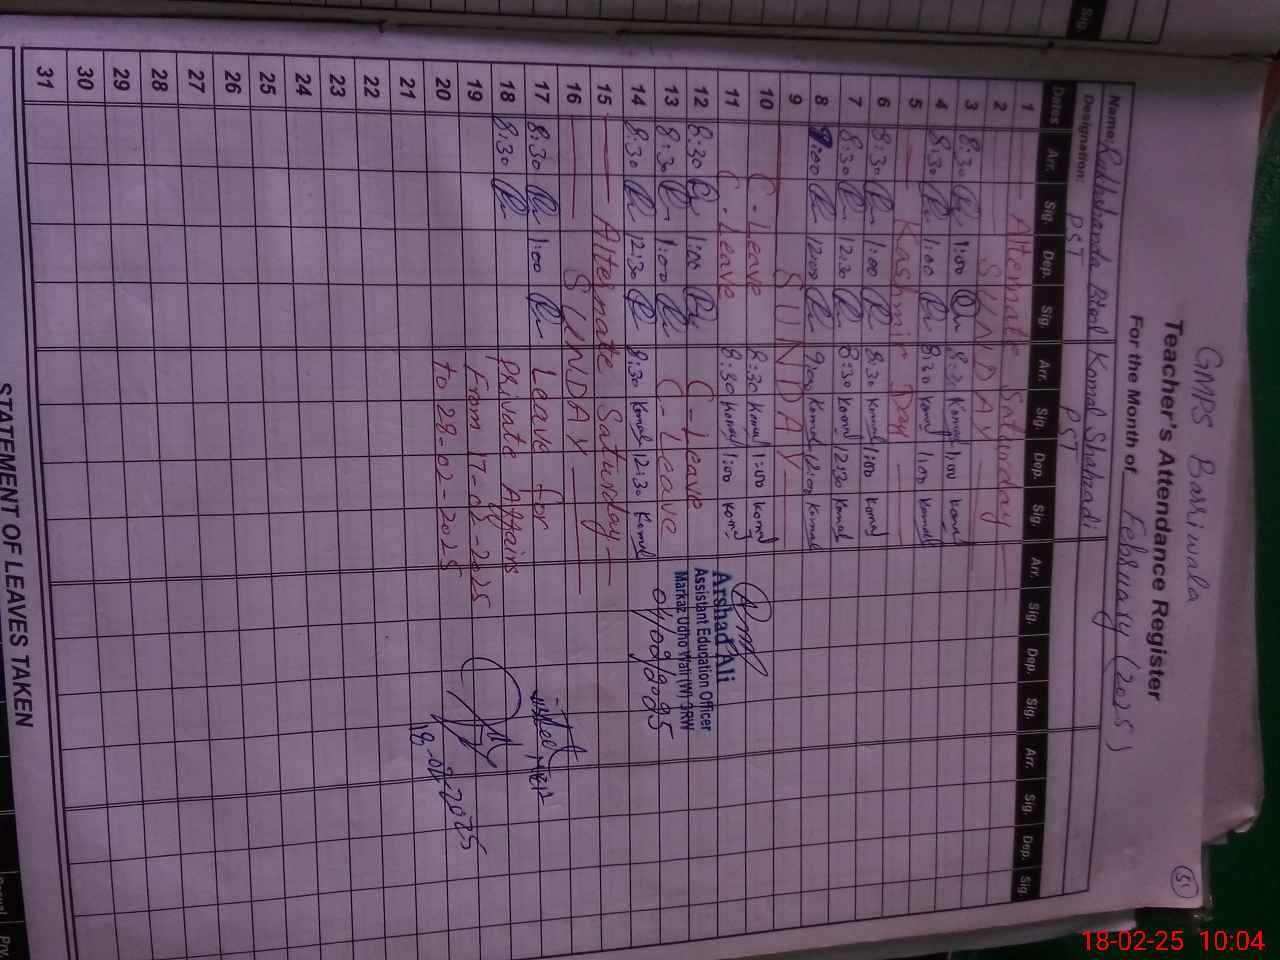 GMPS Barriwala
Teacher's Attendance Register
For the Month of February (2025)
5
Name: Rukhshanda Bibi Komal Shahzadi
Designation: PST PST
Dates Arr. Sig. Dep. Sig. Arr. Sig. Dep. Sig. Arr. Sig. Dep. Sig. Arr. Sig. Dep. Sig.
1 Alternate Saturday
2 SUNDAY
3 8:30 1:00 8:30 Komal 1:00 Komal
4 8:30 1:00 8:30 Komal 1:00 Komal
5 Kashmir Day
6 8:30 1:00 8:30 Komal 1:00 Komal
7 8:30 12:30 8:30 Komal 12:30 Komal
8 9:00 12:00 9:00 Komal 12:00 Komal
9 SUNDAY
10 C-Leave 8:30 Komal 1:00 Komal
11 C-Leave 8:30 Komal 1:00 Komal
12 8:30 1:00 C-Leave
13 8:30 1:00 C-Leave
14 8:30 12:30 8:30 Komal 12:30 Komal
15 Alternate Saturday
16 SUNDAY
17 8:30 1:00 Leave for
18 8:30 Private Affairs
19 From 17-02-2025
20 to 28-02-2025
21
22
23
24
25
26
27
28
29
30
31
Arshad Ali
Assistant Education Officer
Markaz Udho Wali (W) SRW
18-02-2025
STATEMENT OF LEAVES TAKEN
Sig.
18-02-25 10:04